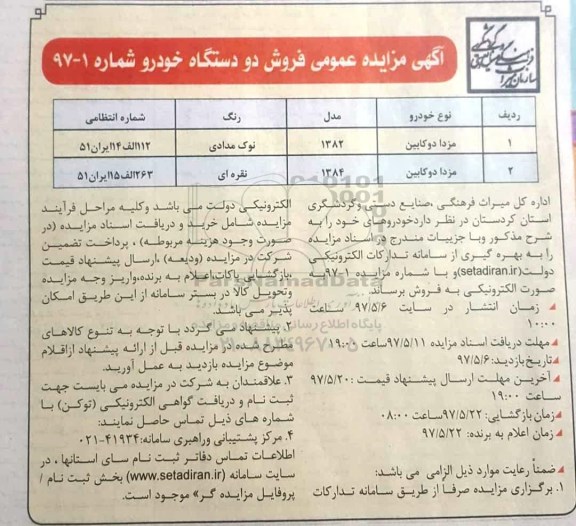 آگهی مزایده عمومی فروش دو دستگاه خودرو شماره ۱-۹۷
ردیف نوع خودرو مدل رنگ شماره انتظامی
۱ مزدا دوکابین ۱۳۸۲ نوک مدادی ۱۱۲الف۱۴ایران۵۱
۲ مزدا دوکابین ۱۳۸۴ نقره ای ۲۶۳الف۱۵ایران۵۱
اداره کل میراث فرهنگی ،صنایع دستی وگردشگری
استان کردستان در نظر داردخودروهای خود را به
شرح مذکور وبا جزییات مندرج در اسناد مزایده
را به بهره گیری از سامانه تدارکات الکترونیکی
دولت(setadiran.ir)و با شماره مزایده ۱-۹۷به
صورت الکترونیکی به فروش برساند.
زمان انتشار در سایت ۹۷/۵/۶ ساعت
۱۰:۰۰
مهلت دریافت اسناد مزایده ۹۷/۵/۱۱ساعت ۱۹:۰۰
تاریخ بازدید:۹۷/۵/۶
آخرین مهلت ارسال پیشنهاد قیمت :۹۷/۵/۲۰
ساعت ۱۹:۰۰
زمان بازگشایی: ۹۷/۵/۲۲ساعت ۰۸:۰۰
زمان اعلام به برنده: ۹۷/۵/۲۲
ضمناً رعایت موارد ذیل الزامی می باشد:
۱. برگزاری مزایده صرفاً از طریق سامانه تدارکات
الکترونیکی دولت می باشد وکلیه مراحل فرآیند
مزایده شامل خرید و دریافت اسناد مزایده (در
صورت وجود هزینه مربوطه) ، پرداخت تضمین
شرکت در مزایده (ودیعه) ،ارسال پیشنهاد قیمت
،بازگشایی پاکات،اعلام به برنده،واریز وجه مزایده
وتحویل کالا در بستر سامانه از این طریق امکان
پذیر می باشد.
۲. پیشنهاد می گردد با توجه به تنوع کالاهای
مطرح شده در مزایده قبل از ارائه پیشنهاد ازاقلام
موضوع مزایده بازدید به عمل آورید.
۳. علاقمندان به شرکت در مزایده می بایست جهت
ثبت نام و دریافت گواهی الکترونیکی (توکن) با
شماره های ذیل تماس حاصل نمایند:
۴. مرکز پشتیبانی وراهبری سامانه:۴۱۹۳۴-۰۲۱
اطلاعات تماس دفاتر ثبت نام سای استانها ، در
سایت سامانه (www.setadiran.ir) بخش ثبت نام /
پروفایل مزایده گر» موجود است.
ParsNamadData
پایگاه اطلاع رسانی